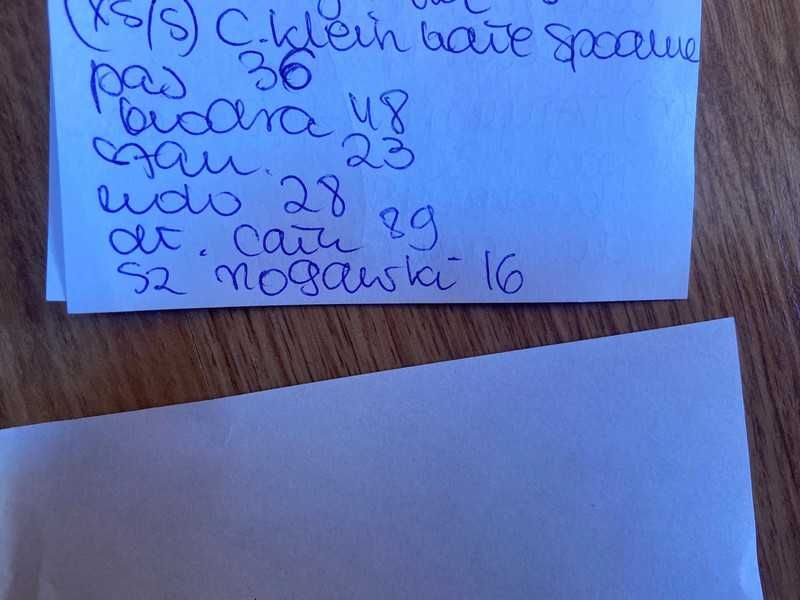 (XS/S) C. Klein białe spodnie
pas 36
biodra 48
stan. 23
udo 28
dł. całk 89
sz nogawki 16